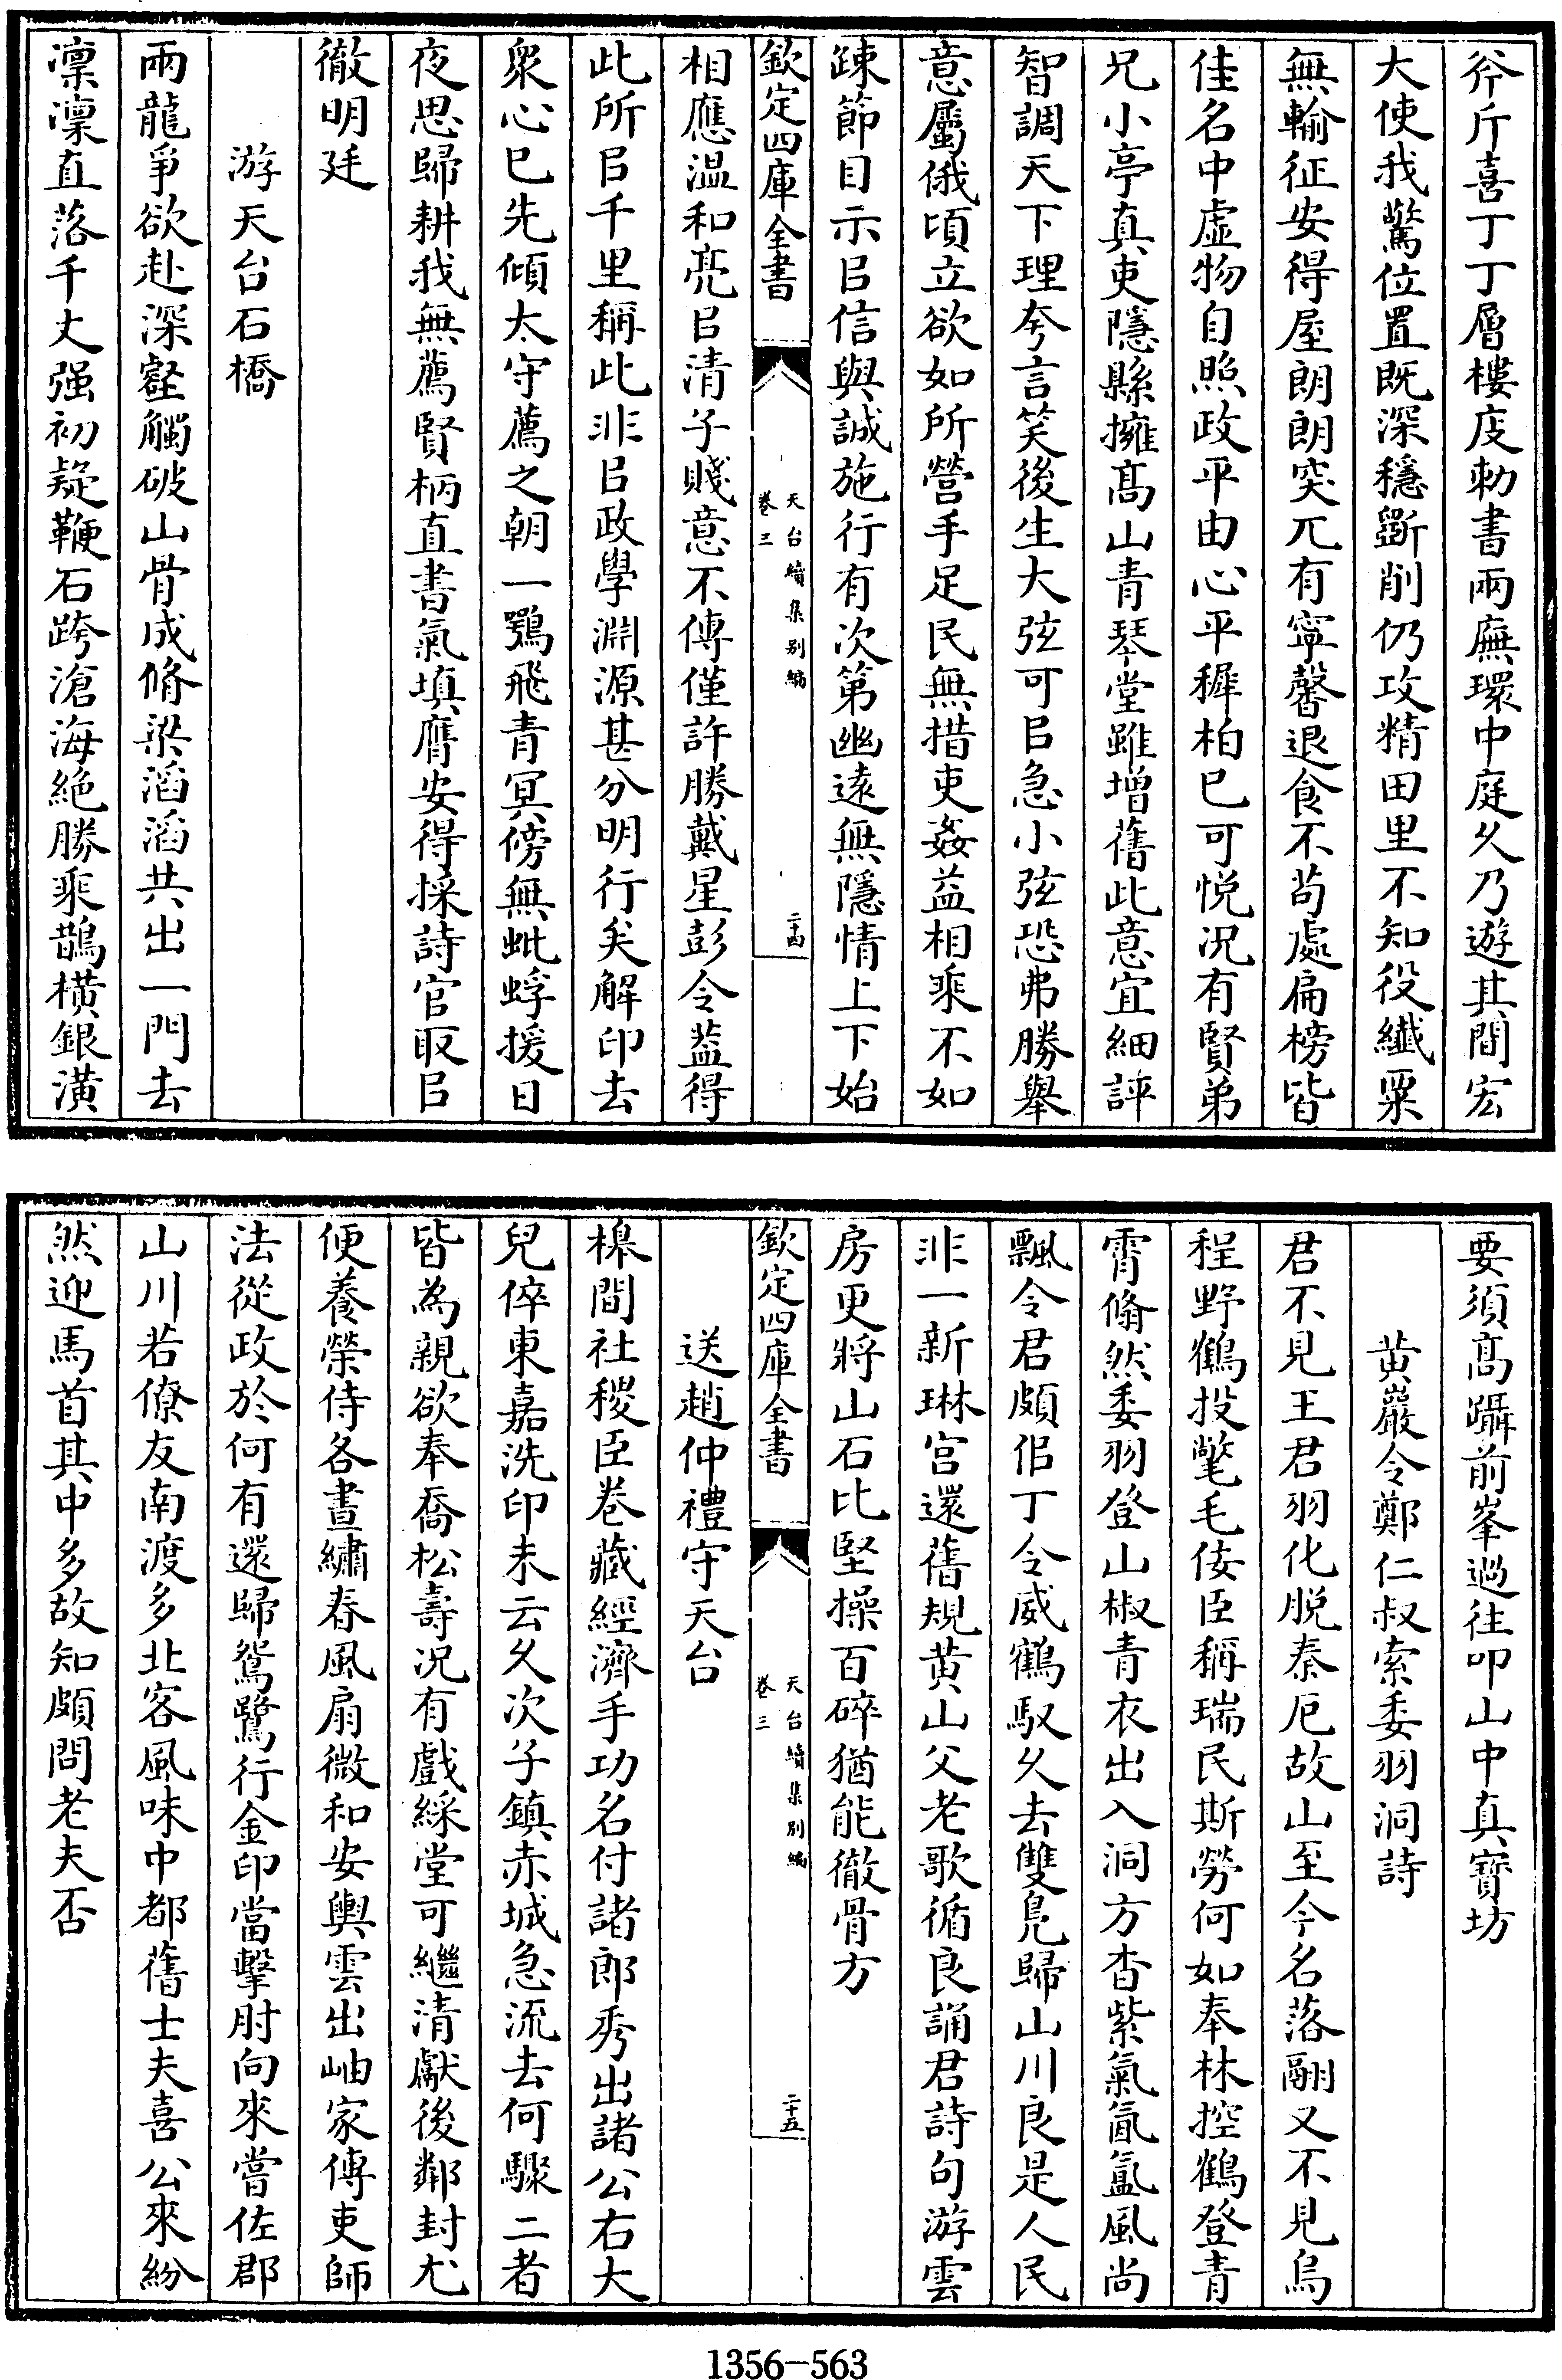 斧斤喜丁丁層樓庋勅書兩廡環中庭久乃遊其間宏
大使我驚位置既深穩斲削仍攻精田里不知役纎粟
無輸征安得屋朗朗突兀有寧馨退食不茍處扁榜皆
佳名中虛物自照政平由心平穉柏已可悦況有賢弟
兄小亭真吏隱縣擁髙山青琴堂雖增舊此意宜細評
智調天下理夸言笑後生大弦可㠯急小弦恐弗勝舉
意屬俄頃立欲如所營手足民無措吏姦益相乘不如
踈節目示㠯信與誠施行有次第幽逺無隱情上下始
欽定四庫全書
天台續集别編
卷三
二十四
相應温和亮㠯清子賤意不傳僅許勝戴星彭令葢得
此所㠯千里稱此非㠯政學淵源甚分明行矣解印去
衆心已先傾太守薦之朝一鶚飛青冥傍無蚍蜉援日
夜思歸耕我無薦賢柄直書氣填膺安得採詩官取㠯
徹明廷
游天台石橋
兩龍爭欲赴深壑觸破山骨成脩梁滔滔共出一門去
凛凛直落千丈强初疑鞭石跨滄海絶勝乘鵲橫銀潢
要須髙躡前峯過往叩山中真寶坊
黄巖令鄭仁叔索委羽洞詩
君不見王君羽化脱秦厄故山至今名落翮又不見烏
程野鶴投氅毛佞臣稱瑞民斯勞何如奉林控鶴登青
霄翛然委羽登山椒青衣出入洞方杳紫氣氤氳風尚
飄令君頗佀丁令威鶴馭久去雙鳬歸山川良是人民
非一新琳宫還舊規黄山父老歌循良誦君詩句游雲
房更將山石比堅操百碎猶能徹骨方
欽定四庫全書
天台續集别編
卷三
二十五
送趙仲禮守天台
槔間社稷臣卷藏經濟手功名付諸郎秀出諸公右大
兒倅東嘉洗印未云久次子鎮赤城急流去何驟二者
皆為親欲奉喬松壽況有戲綵堂可繼清獻後鄰封尤
便養榮侍各晝繡春風扇微和安輿雲出岫家傳吏師
法從政於何有還歸鴛鷺行金印當擊肘向來嘗佐郡
山川若僚友南渡多北客風味中都舊士夫喜公來紛
然迎馬首其中多故知頗問老夫否
1356-563